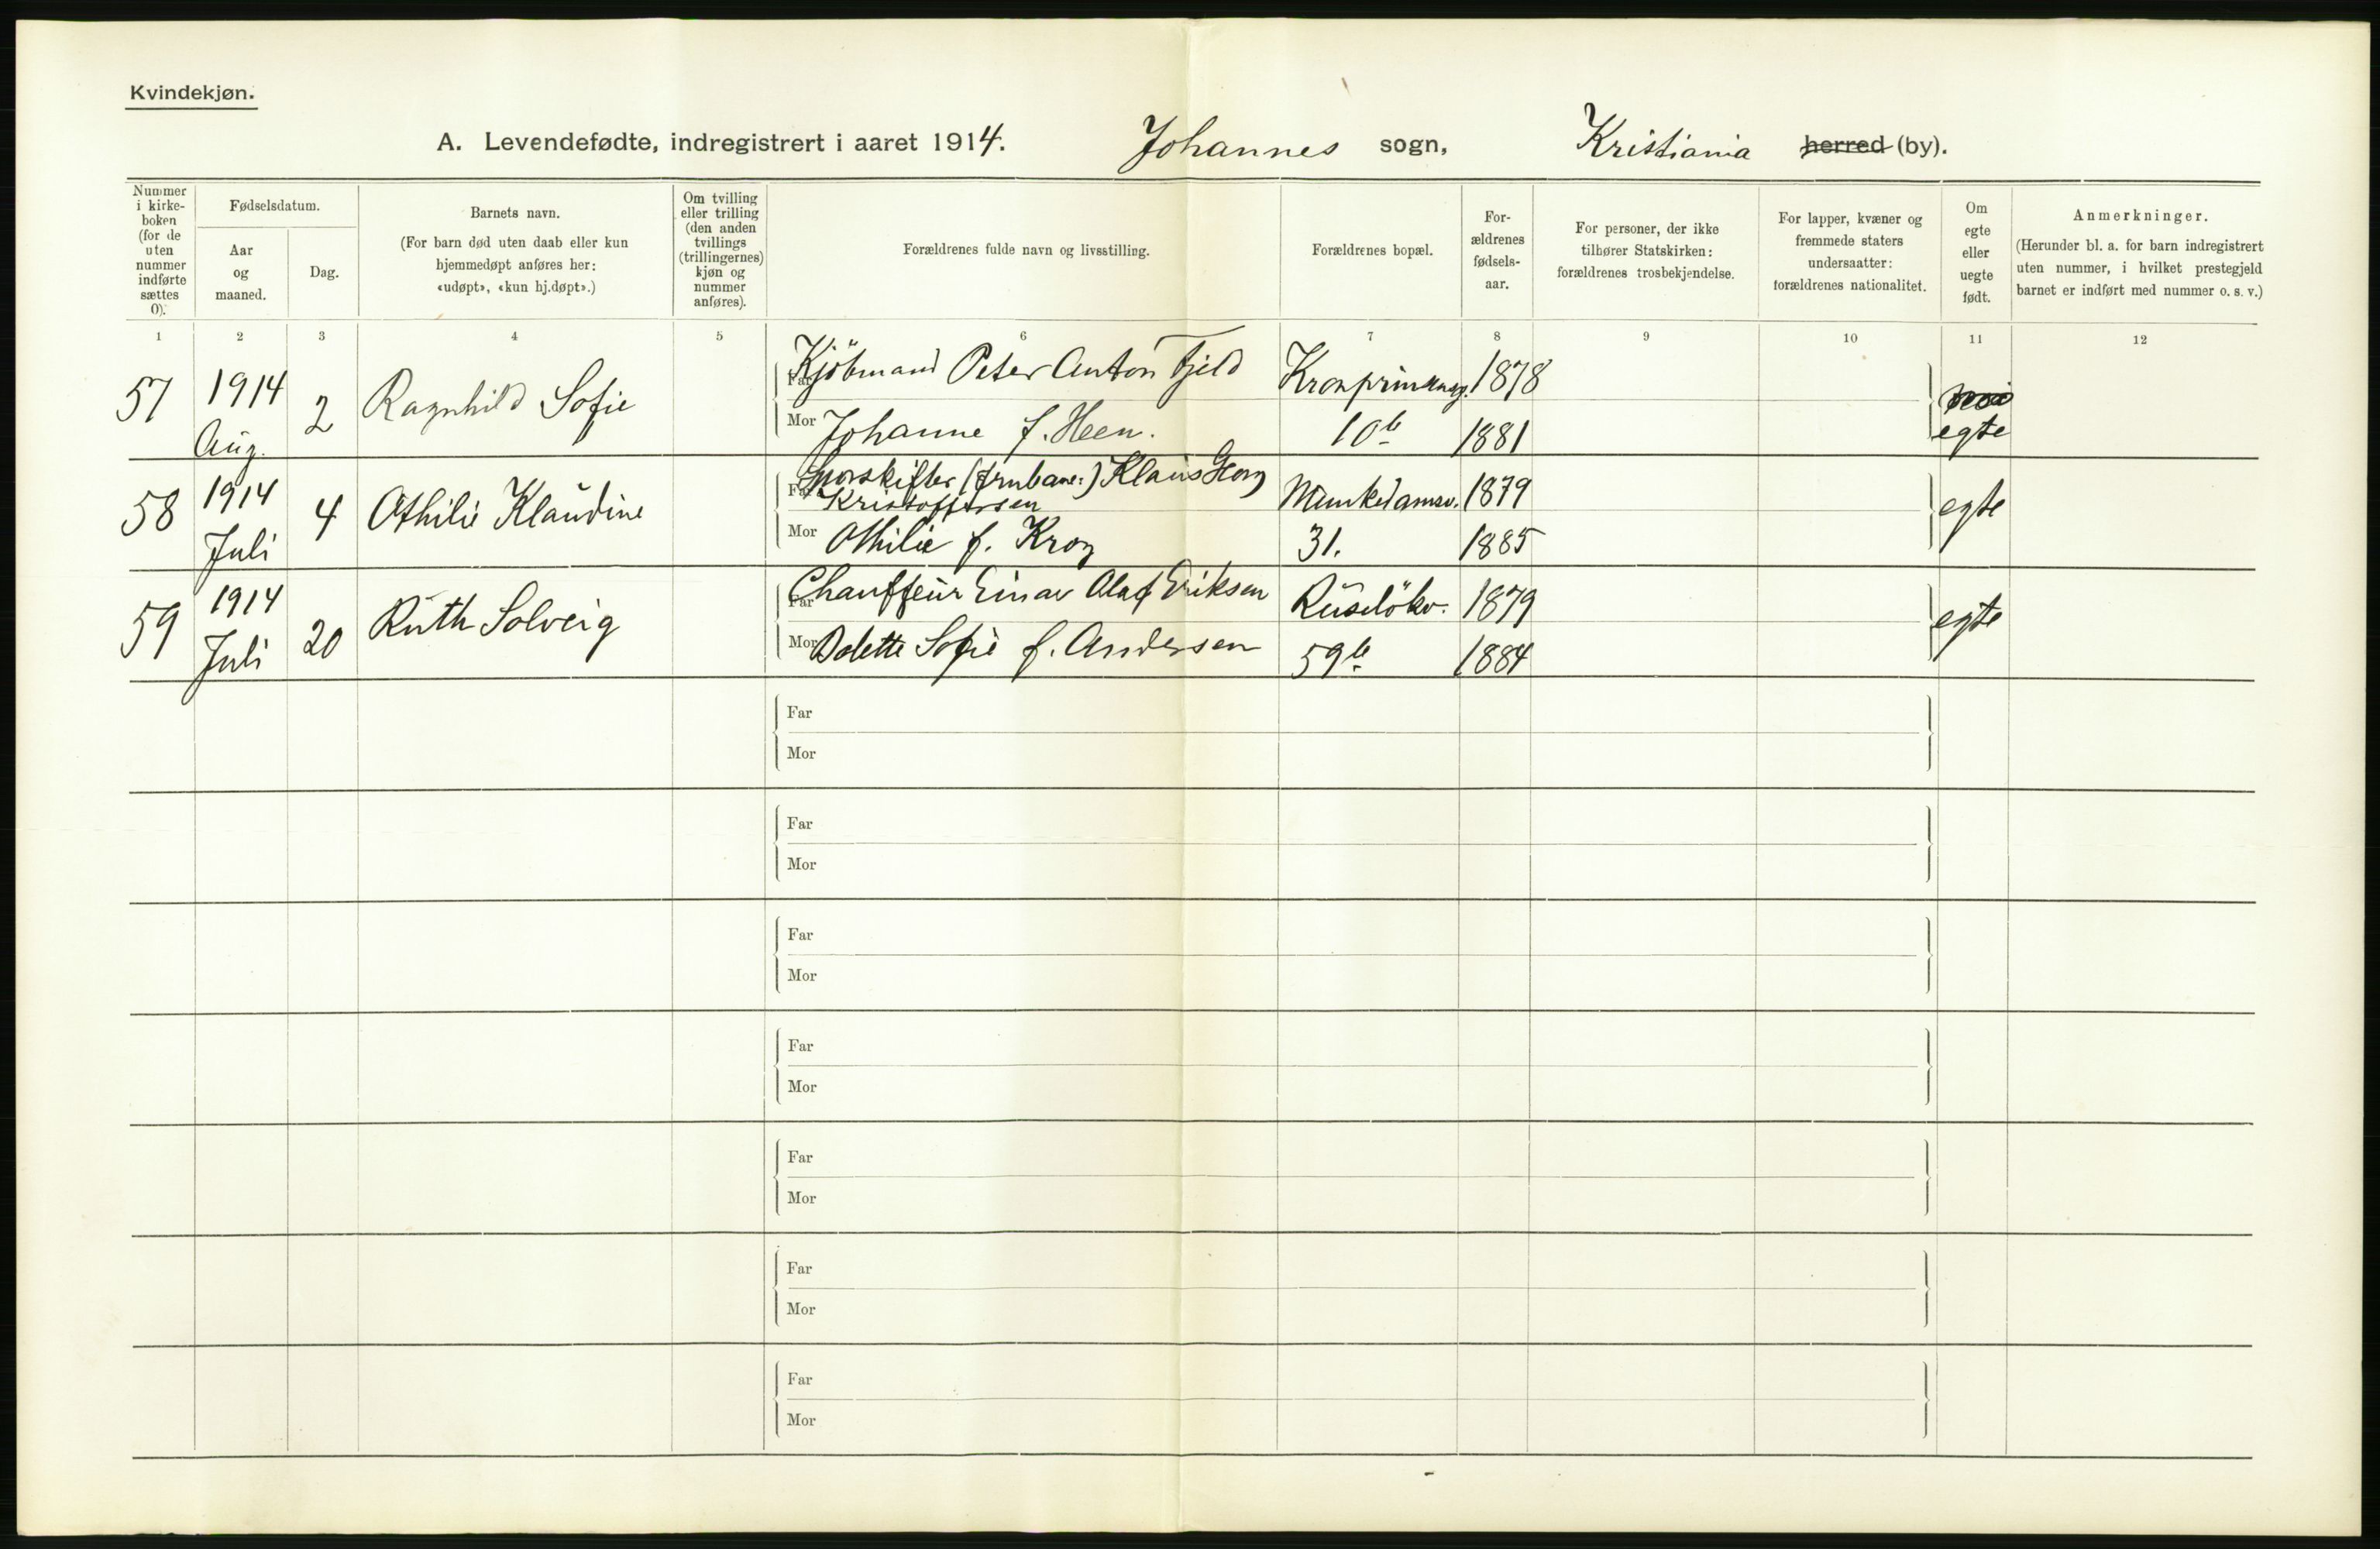 Kvindekjøn.
A. Levendefødte, indregistrert i aaret 1914. Johannes sogn, Kristiania herred (by).
Nummer i kirke-boken (for de uten nummer indførte sættes 0).
Fødselsdatum.
Aar og maaned.
Dag.
Barnets navn.
(For barn død uten daab eller kun
hjemmedøpt anføres her:
«udøpt», «kun hj.døpt».)
Om tvilling
eller trilling
(den anden
tvillings
(trillingernes)
kjøn og
nummer
anføres).
Forældrenes fulde navn og livsstilling.
Forældrenes bopæl.
For-
ældrenes
fødsels-
aar.
For personer, der ikke
tilhører Statskirken:
forældrenes trosbekjendelse.
For lapper, kvæner og
fremmede staters
undersaatter:
forældrenes nationalitet.
Om
egte
eller
uegte
født.
Anmerkninger.
(Herunder bl. a. for barn indregistrert
uten nummer, i hvilket prestegjeld
barnet er indført med nummer o. s. v.)
1 2 3 4 5 6 7 8 9 10 11 12
57 1914 Aug. 2 Ragnhild Sofie
Far Kjöbmand Peter Anton Fjeld Kronprinsensg. 1878
Mor Johanne f. Heen. 10b 1881 egte
58 1914 Juli 4 Othilie Klaudine
Far Sporskifter (Jrnbane:) Klaus Georg
Kristoffersen Munkedamsv. 1879
Mor Othilie f. Krog 31. 1885 egte
59 1914 Juli 20 Ruth Solveig
Far Chauffeur Einar Olaf Eriksen Ruselökv. 1879
Mor Dolette Sofie f. Andersen 59b 1884 egte
Far
Mor
Far
Mor
Far
Mor
Far
Mor
Far
Mor
Far
Mor
Far
Mor